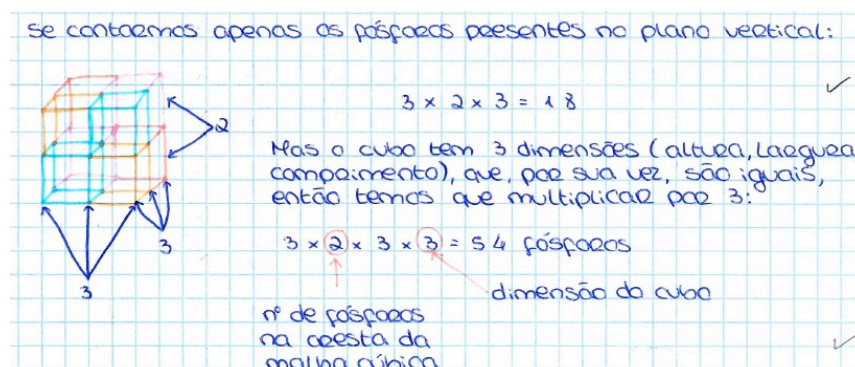 Se contarmos apenas os fósforos presentes no plano vertical:
3 × 2 × 3 = 18
2
Mas o cubo tem 3 dimensões (altura, largura
comprimento), que, por sua vez, são iguais,
então temos que multiplicar por 3:
3
3
3 × 2 × 3 × 3 = 54 fósforos
dimensão do cubo
nº de fósforos
na aresta da
malha cúbica